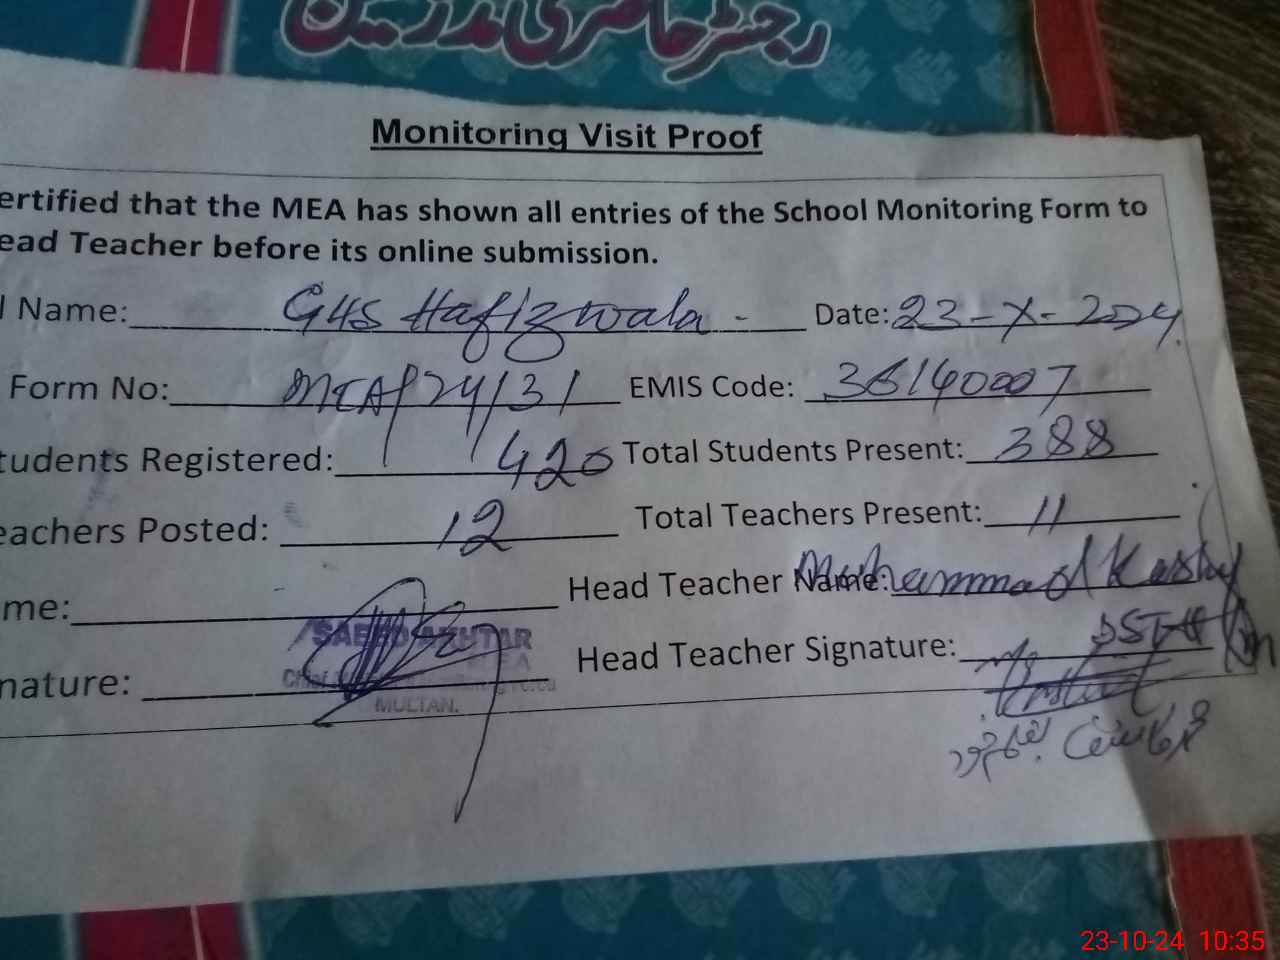 رجسٹر حاضری مدرسین
Monitoring Visit Proof
ertified that the MEA has shown all entries of the School Monitoring Form to
ead Teacher before its online submission.
l Name: GHS Hafizwala - Date: 23-X-2024
Form No: MEA/24/31 EMIS Code: 36140007
tudents Registered: 420 Total Students Present: 388
eachers Posted: 12 Total Teachers Present: 11
me: Head Teacher Name: Muhammad Kashif
SAEED AKHTAR SST
nature: Head Teacher Signature:
MULTAN.
23-10-24 10:35